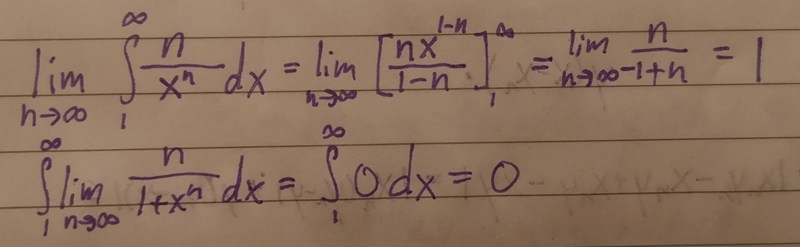 lim_{n→∞} ∫_1^∞ n/x^n dx = lim_{n→∞} [nx^{1-n}/(1-n)]_1^∞ = lim_{n→∞} n/(-1+n) = 1
∫_1^∞ lim_{n→∞} n/(1+x^n) dx = ∫_1^∞ 0 dx = 0